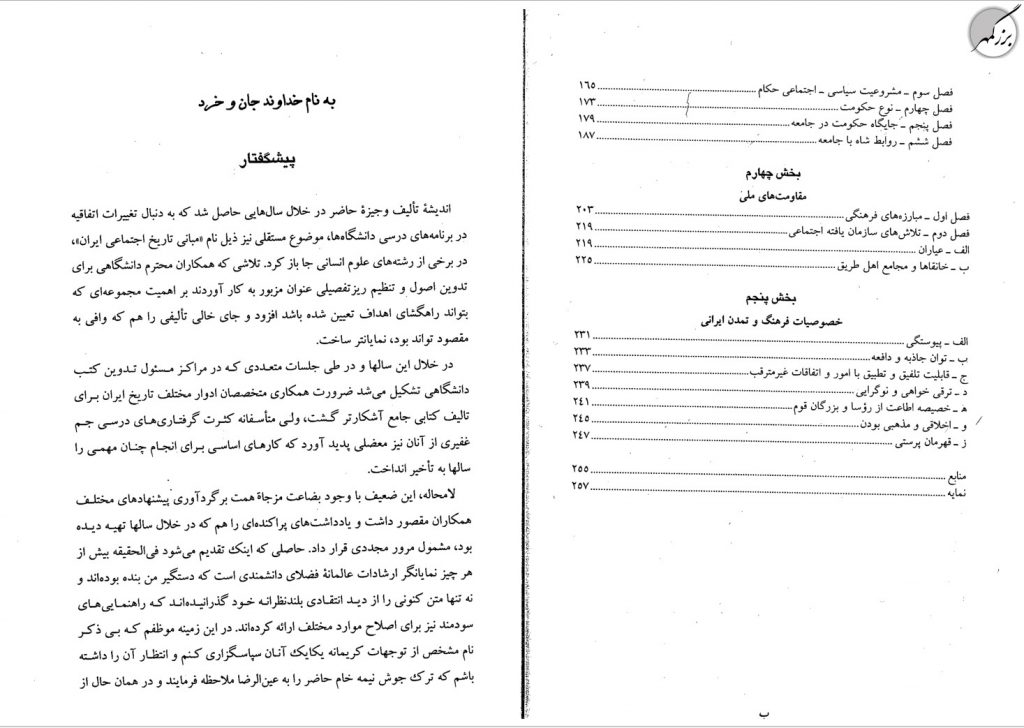 بزرگمهر
فصل سوم ـ مشروعیت سیاسی ـ اجتماعی حکام ........ ۱۶۵
فصل چهارم ـ نوع حکومت ........ ۱۷۳
فصل پنجم ـ جایگاه حکومت در جامعه ........ ۱۷۹
فصل ششم ـ روابط شاه با جامعه ........ ۱۸۷
بخش چهارم
مقاومت‌های ملی
فصل اول ـ مبارزه‌های فرهنگی ........ ۲۰۳
فصل دوم ـ تلاش‌های سازمان یافته اجتماعی ........ ۲۱۹
الف ـ عیاران ........ ۲۱۹
ب ـ خانقاها و مجامع اهل طریق ........ ۲۲۵
بخش پنجم
خصوصیات فرهنگ و تمدن ایرانی
الف ـ پیوستگی ........ ۲۳۱
ب ـ توان جاذبه و دافعه ........ ۲۳۳
ج ـ قابلیت تلفیق و تطبیق با امور و اتفاقات غیرمترقب ........ ۲۳۷
د ـ ترقی خواهی و نوگرایی ........ ۲۳۹
هـ ـ خصیصه اطاعت از رؤسا و بزرگان قوم ........ ۲۴۱
و ـ اخلاقی و مذهبی بودن ........ ۲۴۵
ز ـ قهرمان پرستی ........ ۲۴۷
منابع ........ ۲۵۵
نمایه ........ ۲۵۷
ب
به نام خداوند جان و خرد
پیشگفتار
اندیشهٔ تألیف وجیزهٔ حاضر در خلال سال‌هایی حاصل شد که به دنبال تغییرات اتفاقیه
در برنامه‌های درسی دانشگاه‌ها، موضوع مستقلی نیز ذیل نام «مبانی تاریخ اجتماعی ایران»،
در برخی از رشته‌های علوم انسانی جا باز کرد. تلاشی که همکاران محترم دانشگاهی برای
تدوین اصول و تنظیم ریزتفصیلی عنوان مزبور به کار آوردند بر اهمیت مجموعه‌ای که
بتواند راهگشای اهداف تعیین شده باشد افزود و جای خالی تألیفی را هم که وافی به
مقصود تواند بود، نمایانتر ساخت.
در خلال این سالها و در طی جلسات متعددی که در مراکز مسئول تدوین کتب
دانشگاهی تشکیل می‌شد ضرورت همکاری متخصصان ادوار مختلف تاریخ ایران برای
تالیف کتابی جامع آشکارتر گشت، ولی متأسفانه کثرت گرفتاری‌های درسی جم
غفیری از آنان نیز معضلی پدید آورد که کارهای اساسی برای انجام چنان مهمی را
سالها به تأخیر انداخت.
لامحاله، این ضعیف با وجود بضاعت مزجاة همت برگردآوری پیشنهادهای مختلف
همکاران مقصور داشت و یادداشت‌های پراکنده‌ای را هم که در خلال سالها تهیه دیده
بود، مشمول مرور مجددی قرار داد. حاصلی که اینک تقدیم می‌شود فی‌الحقیقه بیش از
هر چیز نمایانگر ارشادات عالمانهٔ فضلای دانشمندی است که دستگیر من بنده بوده‌اند و
نه تنها متن کنونی را از دید انتقادی بلندنظرانه خود گذرانیده‌اند که راهنمایی‌های
سودمند نیز برای اصلاح موارد مختلف ارائه کرده‌اند. در این زمینه موظفم که بی ذکر
نام مشخص از توجهات کریمانه یکایک آنان سپاسگزاری کنم و انتظار آن را داشته
باشم که ترک جوش نیمه خام حاضر را به عین‌الرضا ملاحظه فرمایند و در همان حال از